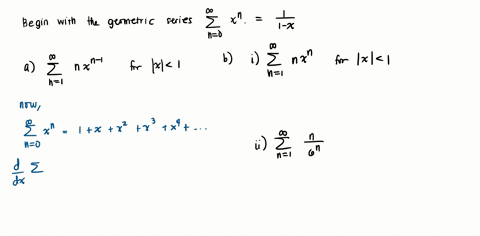 Begin with the geometric series ∞∑n=0 xⁿ. = 1/(1-x)
a) ∞∑n=1 nxⁿ⁻¹ for |x|<1
b) i) ∞∑n=1 nxⁿ for |x|<1
now,
∞∑n=0 xⁿ = 1+x+x²+x³+x⁴+...
ii) ∞∑n=1 n/6ⁿ
d/dx ∑